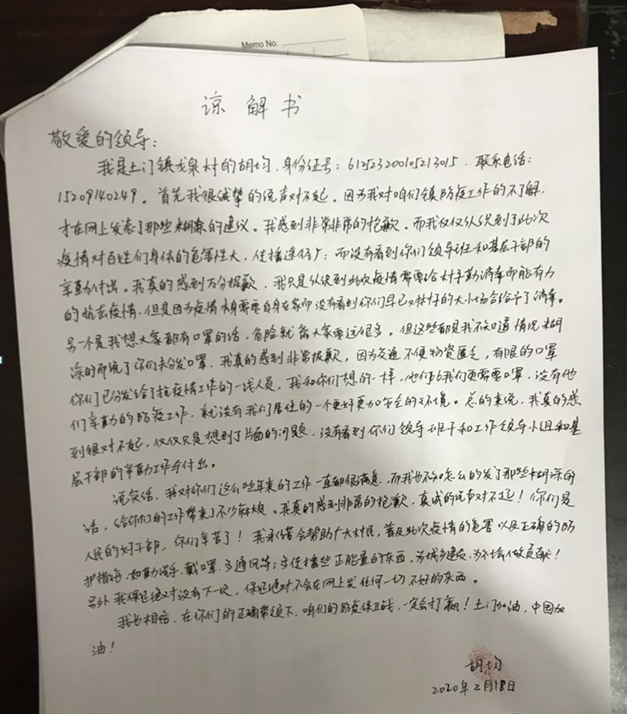 Memo No.
谅解书
敬爱的领导:
我是土门镇龙泉村的胡均,身份证号:612523200105213015,联系电话:
15209140249。首先我很诚挚的说声对不起。因为我对咱们镇防疫工作的不了解,
才在网上发表了那些糊涂的建议。我感到非常非常的抱歉。而我仅仅认识到了此次
疫情对百姓们身体的危害性大,传播途径广;而没有看到你们领导班和基层干部的
辛勤付出。我真的感到万分抱歉,我只是认识到此次疫情需要给村子勤消毒而能有力
的抗击疫情,但是因为疫情本身需要自身在家而没有看到你们早已对村子的大小场合给予了消毒。
另一个是我想大家都有口罩的话,危险就离大家要远很多。但这些都是我不知道情况糊
涂的而说了你们未分发口罩,我真的感到非常抱歉,因为交通不便物资匮乏,有限的口罩
你们已分发给了抗疫情工作的一线人员,我和你们想的一样,他们比我们更需要口罩,没有他
们辛勤的防疫工作,就没有我们居住的一个更好更加安全的环境。总的来说,我真的感
到很对不起,仅仅只是想到了片面的问题,没有看到你们领导班子和工作领导小组和基
层干部的辛勤工作与付出。
说实话,我对你们这么些年来的工作一直都很满意,而我也不知怎么的发了那些糊涂的
话,给你们的工作带来了不少麻烦。我真的感到非常的抱歉,真诚的说声对不起!你们是
人民的好干部,你们辛苦了!我承诺会帮助广大村民,普及此次疫情的危害以及正确的防
护措施,如勤洗手、戴口罩、多通风等;多传播些正能量的东西,为城乡建设,为社会做贡献!
另外我保证绝对没有下一次,保证绝对不会在网上发任何一切不好的东西。
我也相信,在你们的正确带领下,咱们的防疫保卫战,一定会打赢!土门加油,中国加
油!
胡均
2020年2月18日